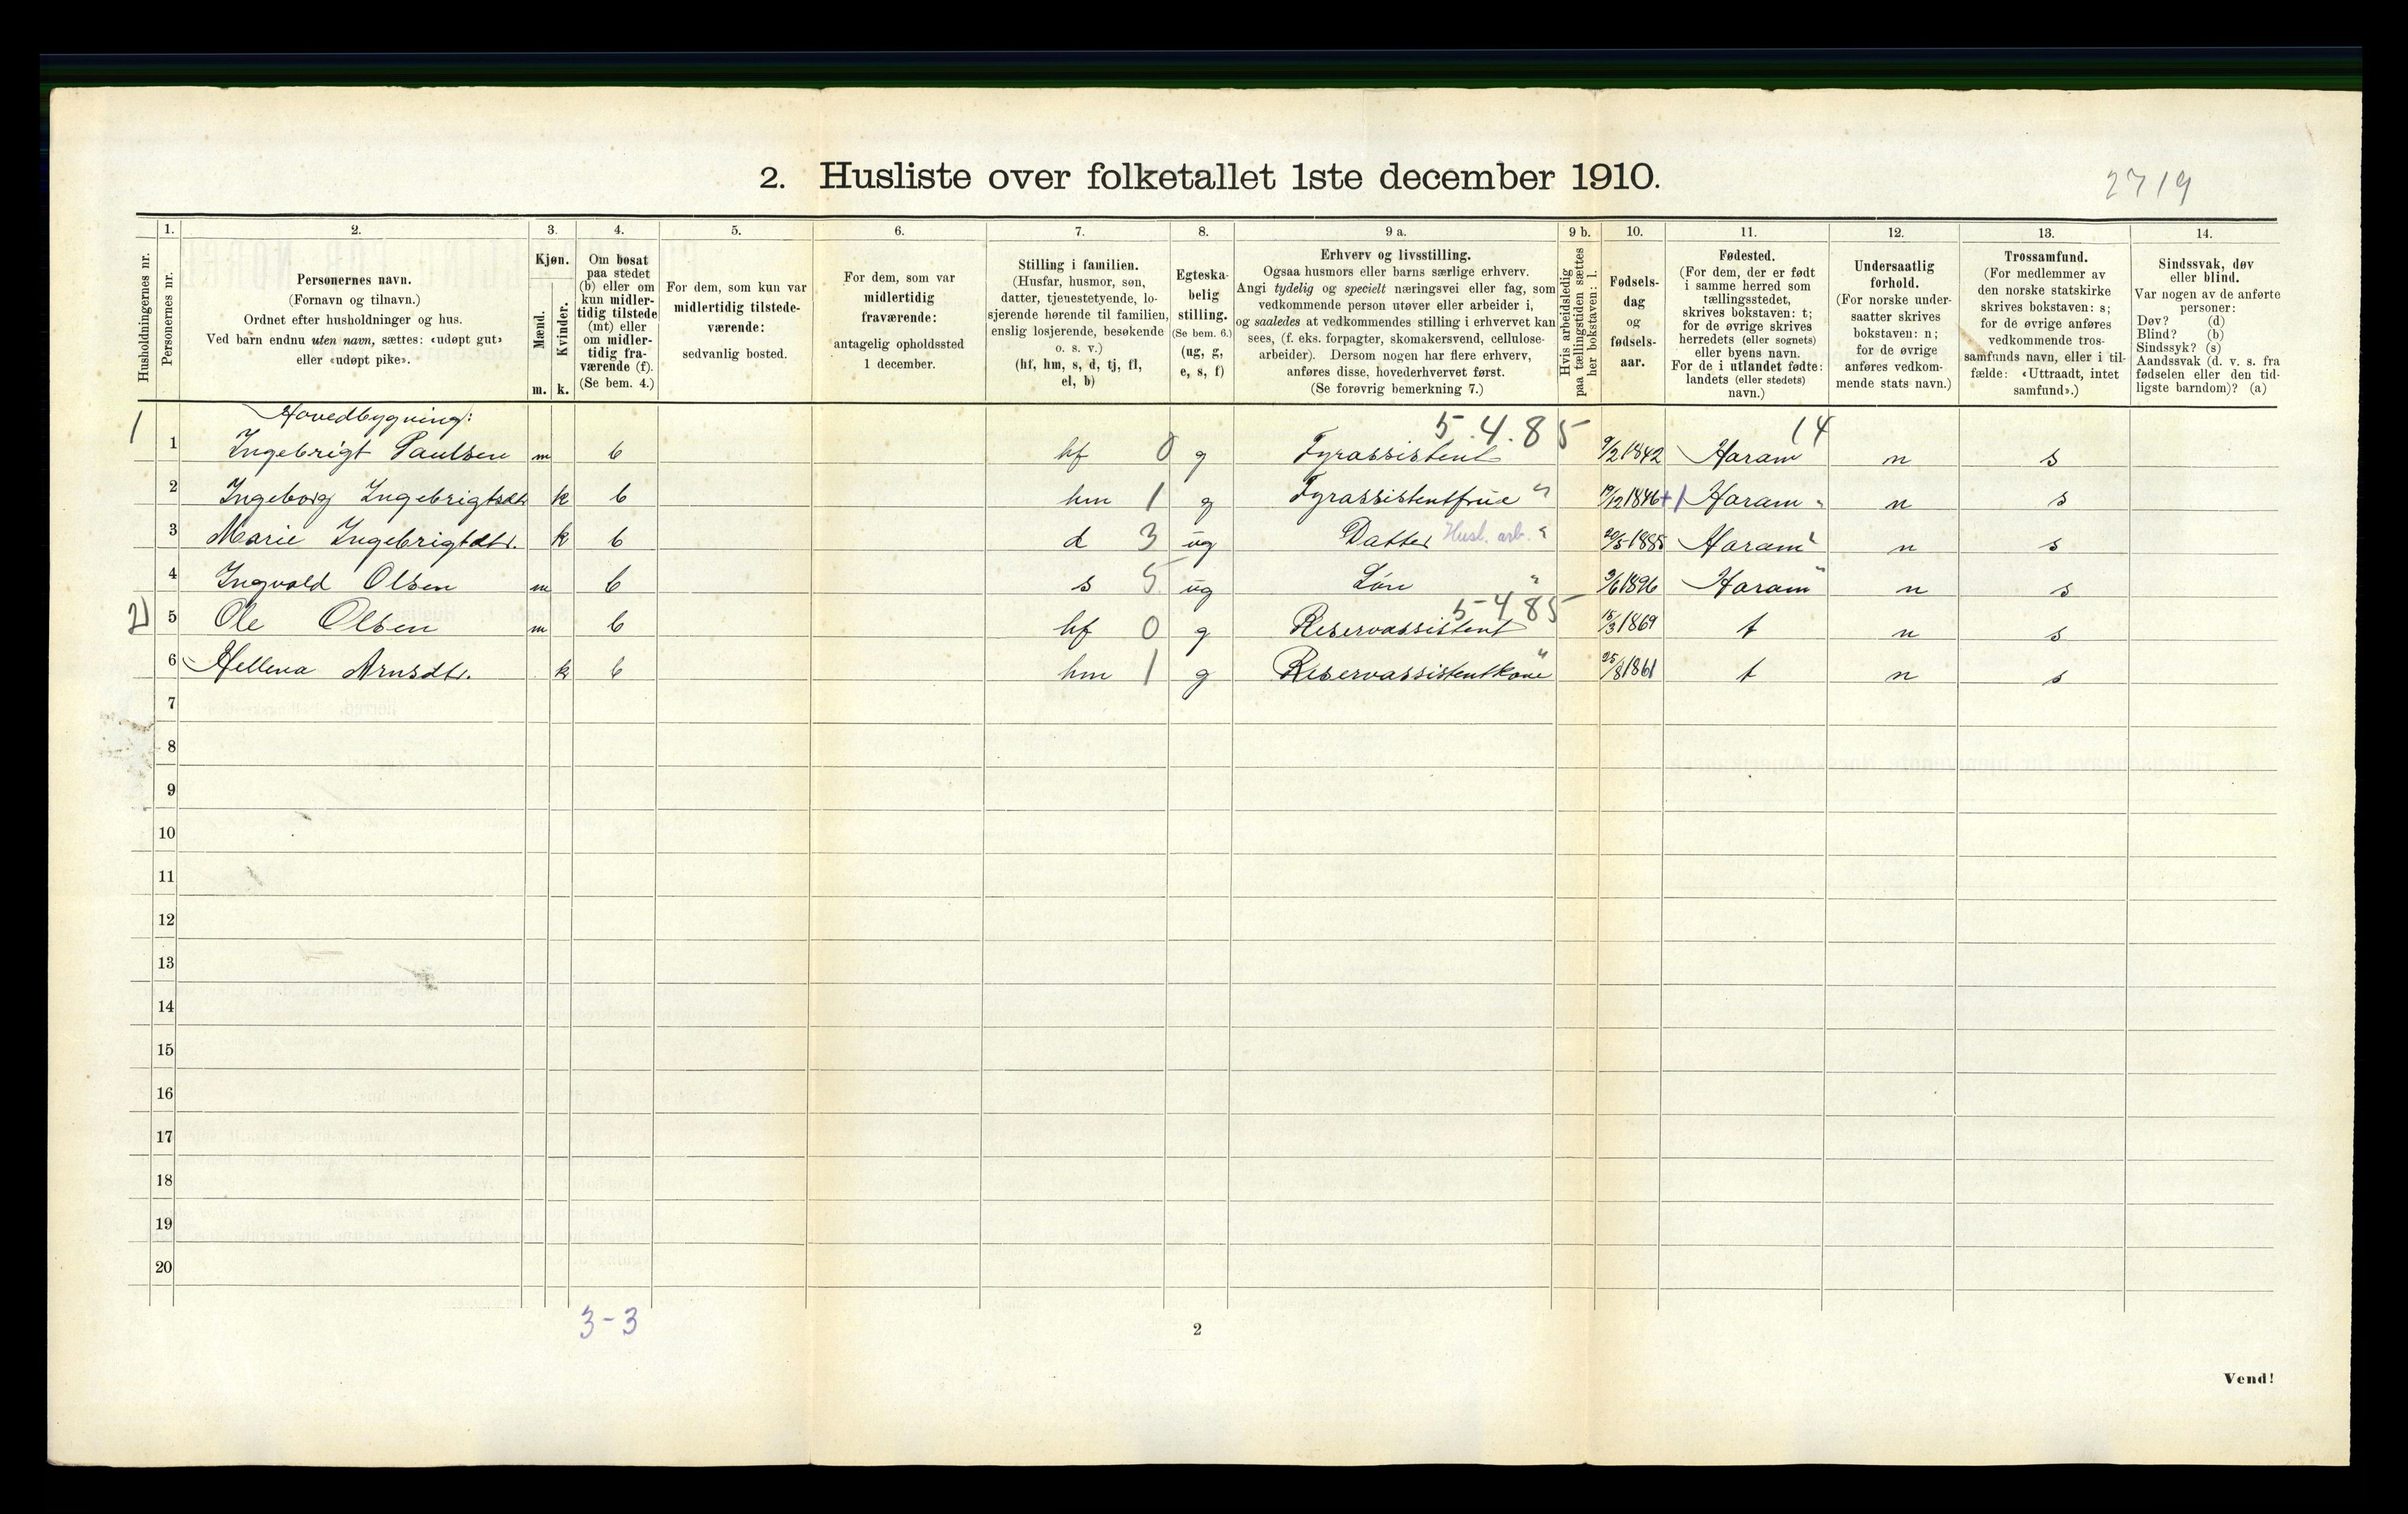 2. Husliste over folketallet 1ste december 1910.
2719
1. 2. 3. 4. 5. 6. 7. 8. 9 a. 9 b. 10. 11. 12. 13. 14.
Husholdningernes nr.
Personernes nr.
Personernes navn.
(Fornavn og tilnavn.)
Ordnet efter husholdninger og hus.
Ved barn endnu uten navn, sættes: «udøpt gut»
eller «udøpt pike».
Kjøn.
Mænd.
Kvinder.
m. k.
Om bosat
paa stedet
(b) eller om
kun midler-
tidig tilstede
(mt) eller
om midler-
tidig fra-
værende (f).
(Se bem. 4.)
For dem, som kun var
midlertidig tilstede-
værende:
sedvanlig bosted.
For dem, som var
midlertidig
fraværende:
antagelig opholdssted
1 december.
Stilling i familien.
(Husfar, husmor, søn,
datter, tjenestetyende, lo-
sjerende hørende til familien,
enslig losjerende, besøkende
o. s. v.)
(hf, hm, s, d, tj, fl,
el, b)
Egteska-
belig
stilling.
(Se bem. 6.)
(ug, g,
e, s, f)
Erhverv og livsstilling.
Ogsaa husmors eller barns særlige erhverv.
Angi tydelig og specielt næringsvei eller fag, som
vedkommende person utøver eller arbeider i,
og saaledes at vedkommendes stilling i erhvervet kan
sees, (f. eks. forpagter, skomakersvend, cellulose-
arbeider). Dersom nogen har flere erhverv,
anføres disse, hovederhvervet først.
(Se forøvrig bemerkning 7.)
Hvis arbeidsledig
paa tællingstiden sættes
her bokstaven: l.
Fødsels-
dag
og
fødsels-
aar.
Fødested.
(For dem, der er født
i samme herred som
tællingsstedet,
skrives bokstaven: t;
for de øvrige skrives
herredets (eller sognets)
eller byens navn.
For de i utlandet fødte:
landets (eller stedets)
navn.)
Undersaatlig
forhold.
(For norske under-
saatter skrives
bokstaven: n;
for de øvrige
anføres vedkom-
mende stats navn.)
Trossamfund.
(For medlemmer av
den norske statskirke
skrives bokstaven: s;
for de øvrige anføres
vedkommende tros-
samfunds navn, eller i til-
fælde: «Uttraadt, intet
samfund».)
Sindssvak, døv
eller blind.
Var nogen av de anførte
personer:
Døv? (d)
Blind? (b)
Sindssyk? (s)
Aandssvak (d. v. s. fra
fødselen eller den tid-
ligste barndom)? (a)
Hovedbygning: 5.4.85 14
1 1 Ingebrigt Paulsen m b hf 0 g Fyrassistent 9/2 1842 Haram n s
2 Ingeborg Ingebrigtsdtr k b hm 1 g Fyrassistentfrue " 19/12 1846 +1 Haram " n s
3 Marie Ingebrigtdtr. k b d 3 ug Datter Husl. arb. " 20/5 1885 Haram " n s
4 Ingvald Olsen m b s 5 ug Søn " 3/6 1896 Haram " n s
5-4 85
2) 5 Ole Olsen m b hf 0 g Reservassistent 15/3 1869 t n s
6 Hellena Arnsdtr. k b hm 1 g Reservassistentkone " 25/8 1861 t n s
7
8
9
10
11
12
13
14
15
16
17
18
19
20
3-3
2
Vend!